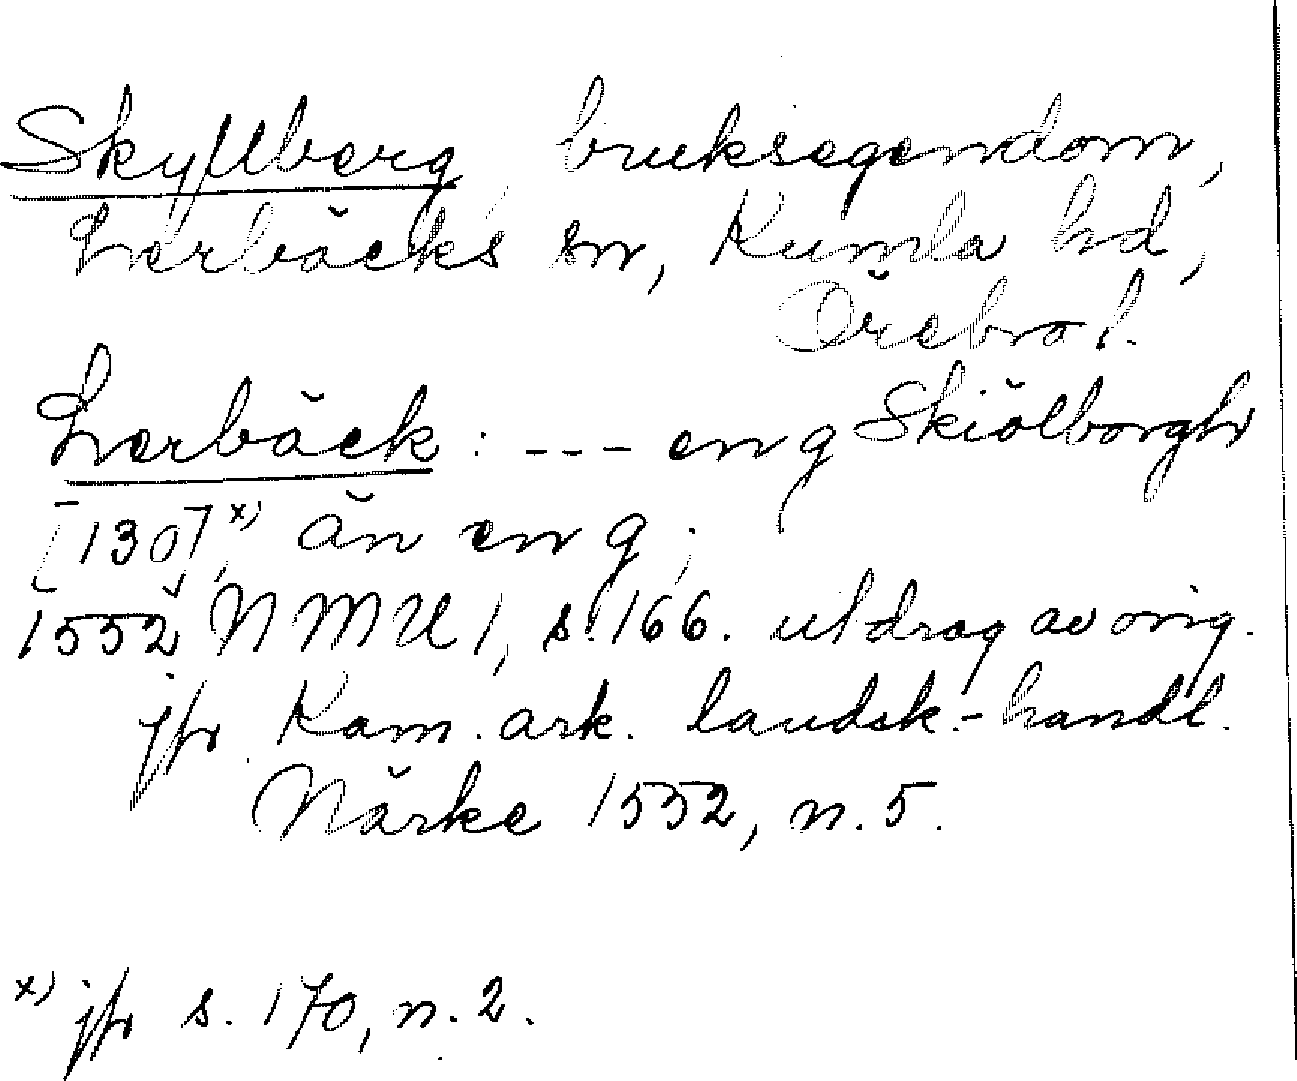 Skyllberg, bruksegendom,
Lerbäcks sn, Kumla hd,
Örebro l.
Lerbäck : --- en g Skiölborghr
[130],x) än en g ;
1552 NMU 1, s. 166. utdrag av orig.
jfr Kam. ark. landsk.-handl.
Närke 1552, n. 5.
x) jfr s. 170, n. 2.